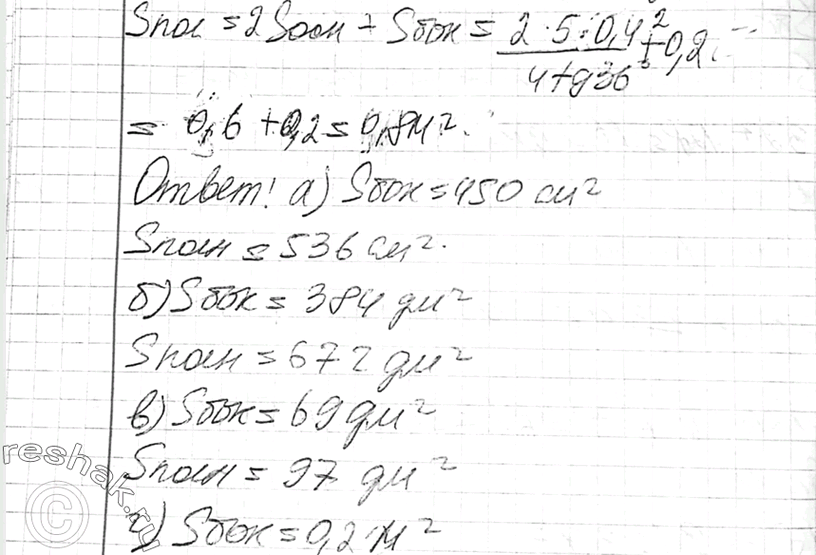 Sпол = 2Sосн + Sбок = 2·5·0,4² / 4tg36° + 0,2 =
= 0,6 + 0,2 = 0,8м².
Ответ: а) Sбок = 450 см²
Sполн = 536 см².
б) Sбок = 384 дм²
Sполн = 672 дм²
в) Sбок = 69 дм²
Sполн = 97 дм²
г) Sбок = 0,2 м²
reshak.ru
©